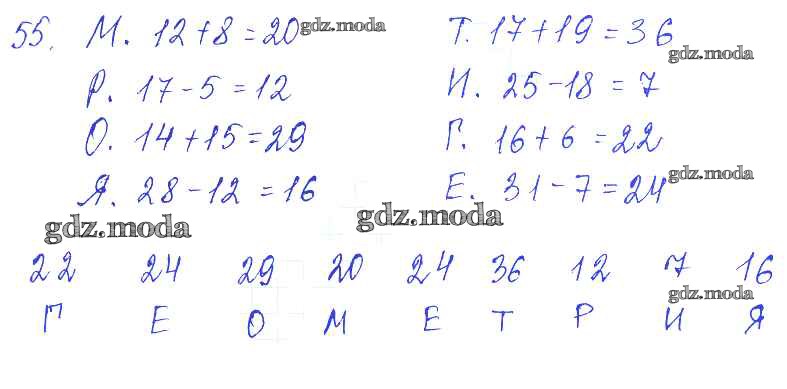 55. М. 12+8=20 gdz.moda Т. 17+19=36
gdz.moda
Р. 17-5=12 И. 25-18=7
О. 14+15=29 Г. 16+6=22
Я. 28-12=16 Е. 31-7=24 gdz.moda
gdz.moda gdz.moda
22 24 29 20 24 36 12 7 16
gdz.moda
Г Е О М Е Т Р И Я